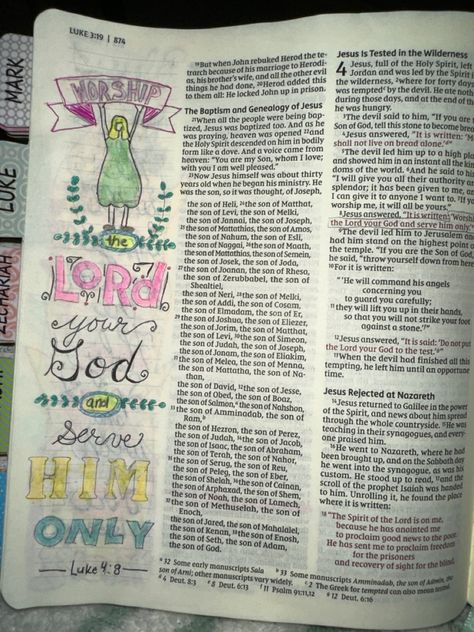 LUKE 3:19 | 874
MARK
LUKE
ZECHARIAH
WORSHIP
the
LORD
your
God
and
serve
HIM
ONLY
Luke 4:8
¹⁹But when John rebuked Herod the te-
trarch because of his marriage to Herodi-
as, his brother's wife, and all the other evil
things he had done, ²⁰Herod added this
to them all: He locked John up in prison.
The Baptism and Genealogy of Jesus
²¹When all the people were being bap-
tized, Jesus was baptized too. And as he
was praying, heaven was opened ²²and
the Holy Spirit descended on him in bodily
form like a dove. And a voice came from
heaven: "You are my Son, whom I love;
with you I am well pleased."
²³Now Jesus himself was about thirty
years old when he began his ministry. He
was the son, so it was thought, of Joseph,
the son of Heli, ²⁴the son of Matthat,
the son of Levi, the son of Melki,
the son of Jannai, the son of Joseph,
²⁵the son of Mattathias, the son of Amos,
the son of Nahum, the son of Esli,
the son of Naggai, ²⁶the son of Maath,
the son of Mattathias, the son of Semein,
the son of Josek, the son of Joda,
²⁷the son of Joanan, the son of Rhesa,
the son of Zerubbabel, the son of
Shealtiel,
the son of Neri, ²⁸the son of Melki,
the son of Addi, the son of Cosam,
the son of Elmadam, the son of Er,
²⁹the son of Joshua, the son of Eliezer,
the son of Jorim, the son of Matthat,
the son of Levi, ³⁰the son of Simeon,
the son of Judah, the son of Joseph,
the son of Jonam, the son of Eliakim,
³¹the son of Melea, the son of Menna,
the son of Mattatha, the son of Na-
than,
the son of David, ³²the son of Jesse,
the son of Obed, the son of Boaz,
the son of Salmon, the son of Nahshon,
³³the son of Amminadab, the son of
Ram,
the son of Hezron, the son of Perez,
the son of Judah, ³⁴the son of Jacob,
the son of Isaac, the son of Abraham,
the son of Terah, the son of Nahor,
³⁵the son of Serug, the son of Reu,
the son of Peleg, the son of Eber,
the son of Shelah, ³⁶the son of Cainan,
the son of Arphaxad, the son of Shem,
the son of Noah, the son of Lamech,
³⁷the son of Methuselah, the son of
Enoch,
the son of Jared, the son of Mahalalel,
the son of Kenan, ³⁸the son of Enosh,
the son of Seth, the son of Adam,
the son of God.
Jesus Is Tested in the Wilderness
4 Jesus, full of the Holy Spirit, left
Jordan and was led by the Spirit
the wilderness, ²where for forty days
was tempted by the devil. He ate noth
during those days, and at the end of
he was hungry.
³The devil said to him, "If you are
Son of God, tell this stone to become
⁴Jesus answered, "It is written:
shall not live on bread alone.'"
⁵The devil led him up to a high pla
and showed him in an instant all the kin
doms of the world. ⁶And he said to hi
"I will give you all their authority
splendor; it has been given to me, an
I can give it to anyone I want to. ⁷If
worship me, it will all be yours."
⁸Jesus answered, "It is written: 'Wors
the Lord your God and serve him only.'
⁹The devil led him to Jerusalem and
had him stand on the highest point
the temple. "If you are the Son of God,
he said, "throw yourself down from here
¹⁰For it is written:
"'He will command his angels
concerning you
to guard you carefully;
¹¹they will lift you up in their hands,
so that you will not strike your foot
against a stone.'"
¹²Jesus answered, "It is said: 'Do not put
the Lord your God to the test.'"
¹³When the devil had finished all this
tempting, he left him until an opportune
time.
Jesus Rejected at Nazareth
¹⁴Jesus returned to Galilee in the power
of the Spirit, and news about him spread
through the whole countryside. ¹⁵He was
teaching in their synagogues, and every-
one praised him.
¹⁶He went to Nazareth, where he had
been brought up, and on the Sabbath day
he went into the synagogue, as was his
custom. He stood up to read, ¹⁷and the
scroll of the prophet Isaiah was handed
to him. Unrolling it, he found the place
where it is written:
¹⁸"The Spirit of the Lord is on me,
because he has anointed me
to proclaim good news to the poor.
He has sent me to proclaim freedom
for the prisoners
and recovery of sight for the blind,
ᵃ 32 Some early manuscripts Sala ᵇ 33 Some manuscripts Amminadab, the son of Admin, the
son of Arni; other manuscripts vary widely. ᶜ 2 The Greek for tempted can also mean tested.
ᵈ 4 Deut. 8:3 ᵉ 8 Deut. 6:13 ᶠ 11 Psalm 91:11,12 ᵍ 12 Deut. 6:16